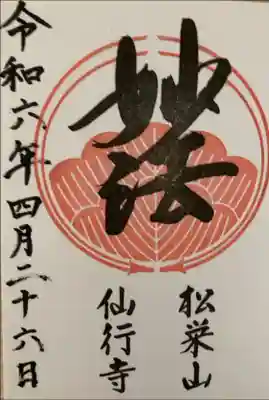 妙法
松栄山
仙行寺
令和六年四月二十六日